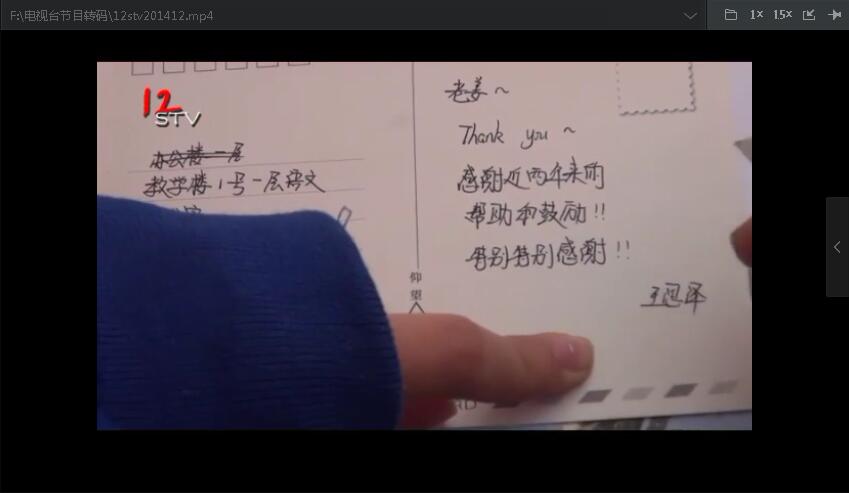 F:\电视台节目转码\12stv201412.mp4
1×
1.5×
12
STV
办公楼一层
教学楼1号一层语文
老姜~
Thank you ~
感谢近两年来的
帮助和鼓励!!
特别特别感谢!!
仰望